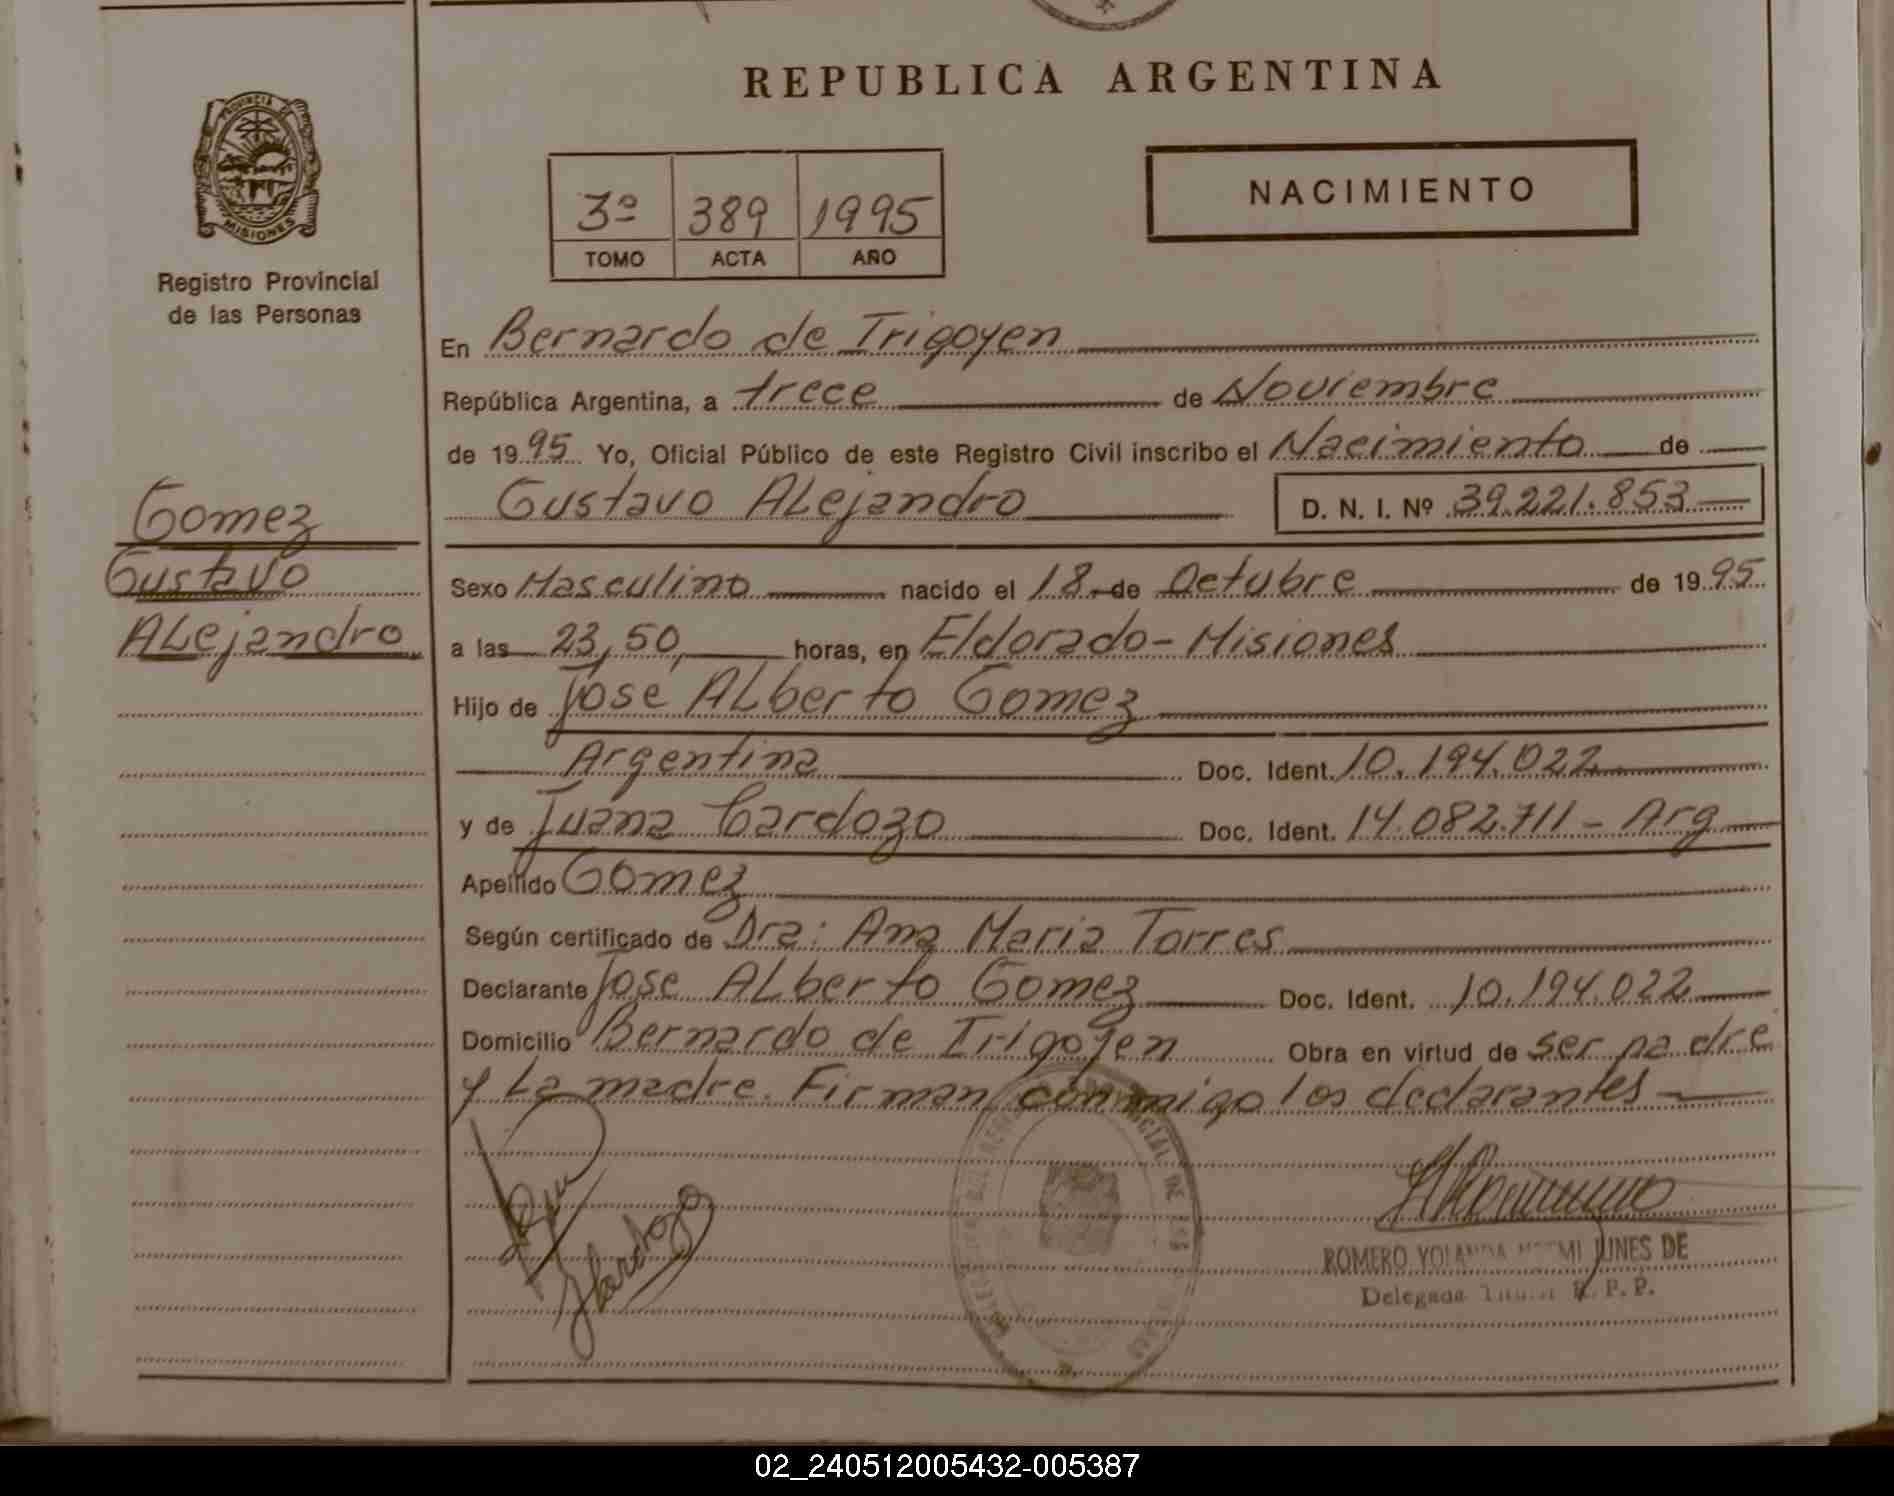 REPUBLICA ARGENTINA
PROVINCIA DE
MISIONES
Registro Provincial
de las Personas
3º 389 1995
TOMO ACTA AÑO
NACIMIENTO
En Bernardo de Irigoyen
República Argentina, a trece de Noviembre
de 1995 Yo, Oficial Público de este Registro Civil inscribo el Nacimiento de
Gustavo ALejandro D. N. I. Nº 39.221.853
Gomez
Gustavo
ALejandro
Sexo Masculino nacido el 18 de Octubre de 1995
a las 23,50 horas, en Eldorado - Misiones
Hijo de José ALberto Gomez
Argentina Doc. Ident. 10.194.022
y de Juana Cardozo Doc. Ident. 14.082.711 - Arg
Apellido Gomez
Según certificado de Dra: Ana Maria Torres
Declarante Jose ALberto Gomez Doc. Ident. 10.194.022
Domicilio Bernardo de Irigoyen Obra en virtud de ser padre
y La madre. Firman conmigo los declarantes
ROMERO YOLANDA JUNES DE
Delegada R. P. P.
02_240512005432-005387